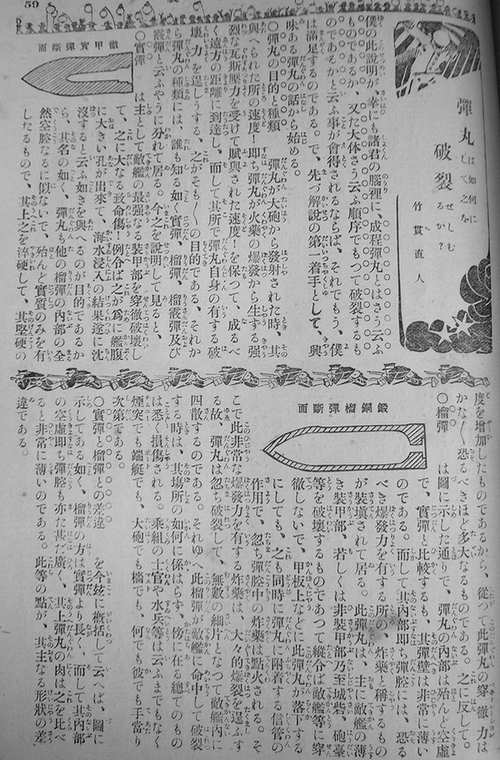 59
彈丸は如何にして之を
破裂せしむるか?
竹貫直人
僕の此說明が、幸にも諸君の腦裡に、成程彈丸とはさう云ふ
ものであるか、又た大体さう云ふ順序でもつて破裂するも
のであるかと云ふ事が會得されるならば、それでもう、僕
は滿足するのである。で、先づ解說の第一着手として、興
味ある彈丸の話から始める。
○彈丸の目的と種類 彈丸が大砲から發射された時、其
與へられた所の速度、卽ち彈丸が火藥の爆發から生ずる强
烈な瓦斯壓力を受けて賦與された速度を保つて、成るべ
く遠方の距離に到達し、而して其所で彈丸自身の有する破
壞力を逞しうする、之がそも〳〵の目的である、それか
ら彈丸の種類には、誰も知る如く實彈、榴彈、榴霰彈及び
霰彈と云ふやうに分れて居る。今之を說明して見ると、
徹甲實彈斷面
○實彈 は主として敵艦の最强なる裝甲部を穿徹破壞し
て、之に大なる致命傷、例令ば之が爲に艦腹
に大きい孔が出來て、海水浸入の結果遂に沈
沒すると云ふ如きを與ふるのが目的であるか
ら、其名の如く、彈丸も他の榴彈の内部の全
然空虛なるに似ないで、殆んど實質のみを有
したるもので、其上之を淬硬して、其堅硬の
度を增加したものであるから、從つて此彈丸の穿徹力は
かなく恐るべきほど多大なるものである。之に反して。
○榴彈 は圖に示した通りで、彈丸の内部は殆んど空虛
で、實彈と比較すると、其彈壁は非常に薄い
のである。而して其内部卽ち彈腔には、恐る
べき爆發力を有する所の、炸藥と稱するもの
が裝塡されて居る。此彈丸は、主に敵艦の薄
き裝甲部、若しくは非裝甲部乃至城砦、砲臺
等を破壞するものであつて縱令ば敵艦等に穿
徹しないで、甲板上などに此彈丸が落下する
にしても、之も同時に彈丸に附着する信管の
作用で、忽ち彈腔中の炸藥は點火される。そ
鍛鋼榴彈斷面
こで此非常な爆發力を有する炸藥は、大々的爆裂を逞ふす
る故、彈丸は忽ち破裂して、無數の細片となつて敵艦内に
四散するのである。それゆへ此榴彈が敵艦に命中して破裂
する時は、其塲所の如何に係はらず、傍に在る總てのもの
は悉く損傷される。乘組の士官や水兵等は云ふまでもなく
煙突でも端艇でも、大砲でも檣でも、何でも彼でも手當り
次第である。
○實彈と榴彈との差違 を今玆に槪括して云へば、圖に
示してある如く、榴彈の方は實彈より長く、而して其内部
の空虛卽ち彈腔も亦た甚だ廣く、其上彈丸の肉は之を比べ
ると非常に薄いのである。此等の點が、其主なる形狀の差
違である。